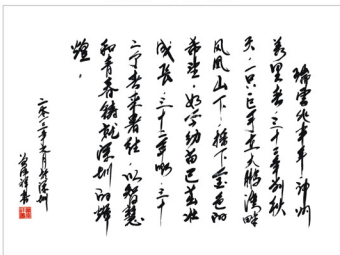 瑞雪兆丰年神州
万里春三十三年前秋
天一只巨手在大鹏湾畔
凤凰山下播下金色的
希望如今幼苗已茁壮
成长三十三年啊三十
三个春来春往以智慧
和青春铸就深圳的辉
煌。
二零一三年元月于深圳